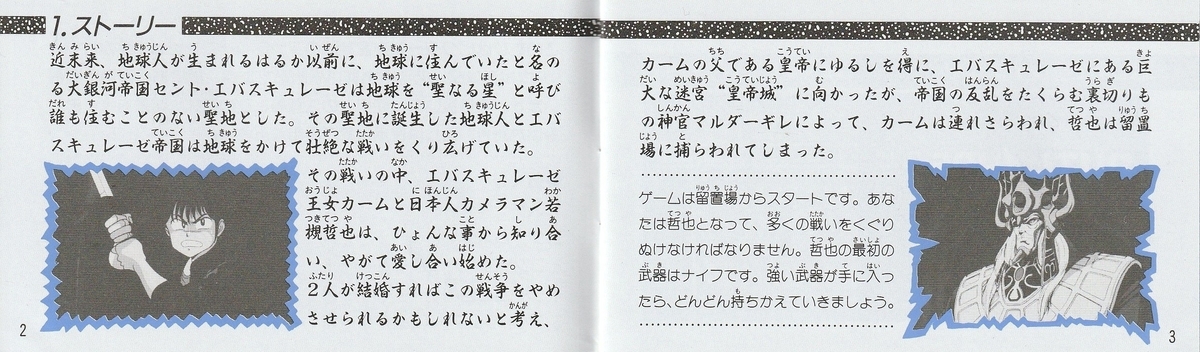 1.ストーリー
近未来、地球人が生まれるはるか以前に、地球に住んでいたと名の
る大銀河帝国セント・エバスキュレーゼは地球を“聖なる星”と呼び
誰も住むことのない聖地とした。その聖地に誕生した地球人とエバ
スキュレーゼ帝国は地球をかけて壮絶な戦いをくり広げていた。
その戦いの中、エバスキュレーゼ
王女カームと日本人カメラマン若
槻哲也は、ひょんな事から知り合
い、やがて愛し合い始めた。
2人が結婚すればこの戦争をやめ
させられるかもしれないと考え、
2
カームの父である皇帝にゆるしを得に、エバスキュレーゼにある巨
大な迷宮“皇帝城”に向かったが、帝国の反乱をたくらむ裏切りも
の神官マルダーギレによって、カームは連れさらわれ、哲也は留置
場に捕らわれてしまった。
ゲームは留置場からスタートです。あな
たは哲也となって、多くの戦いをくぐり
ぬけなければなりません。哲也の最初の
武器はナイフです。強い武器が手に入っ
たら、どんどん持ちかえていきましょう。
3